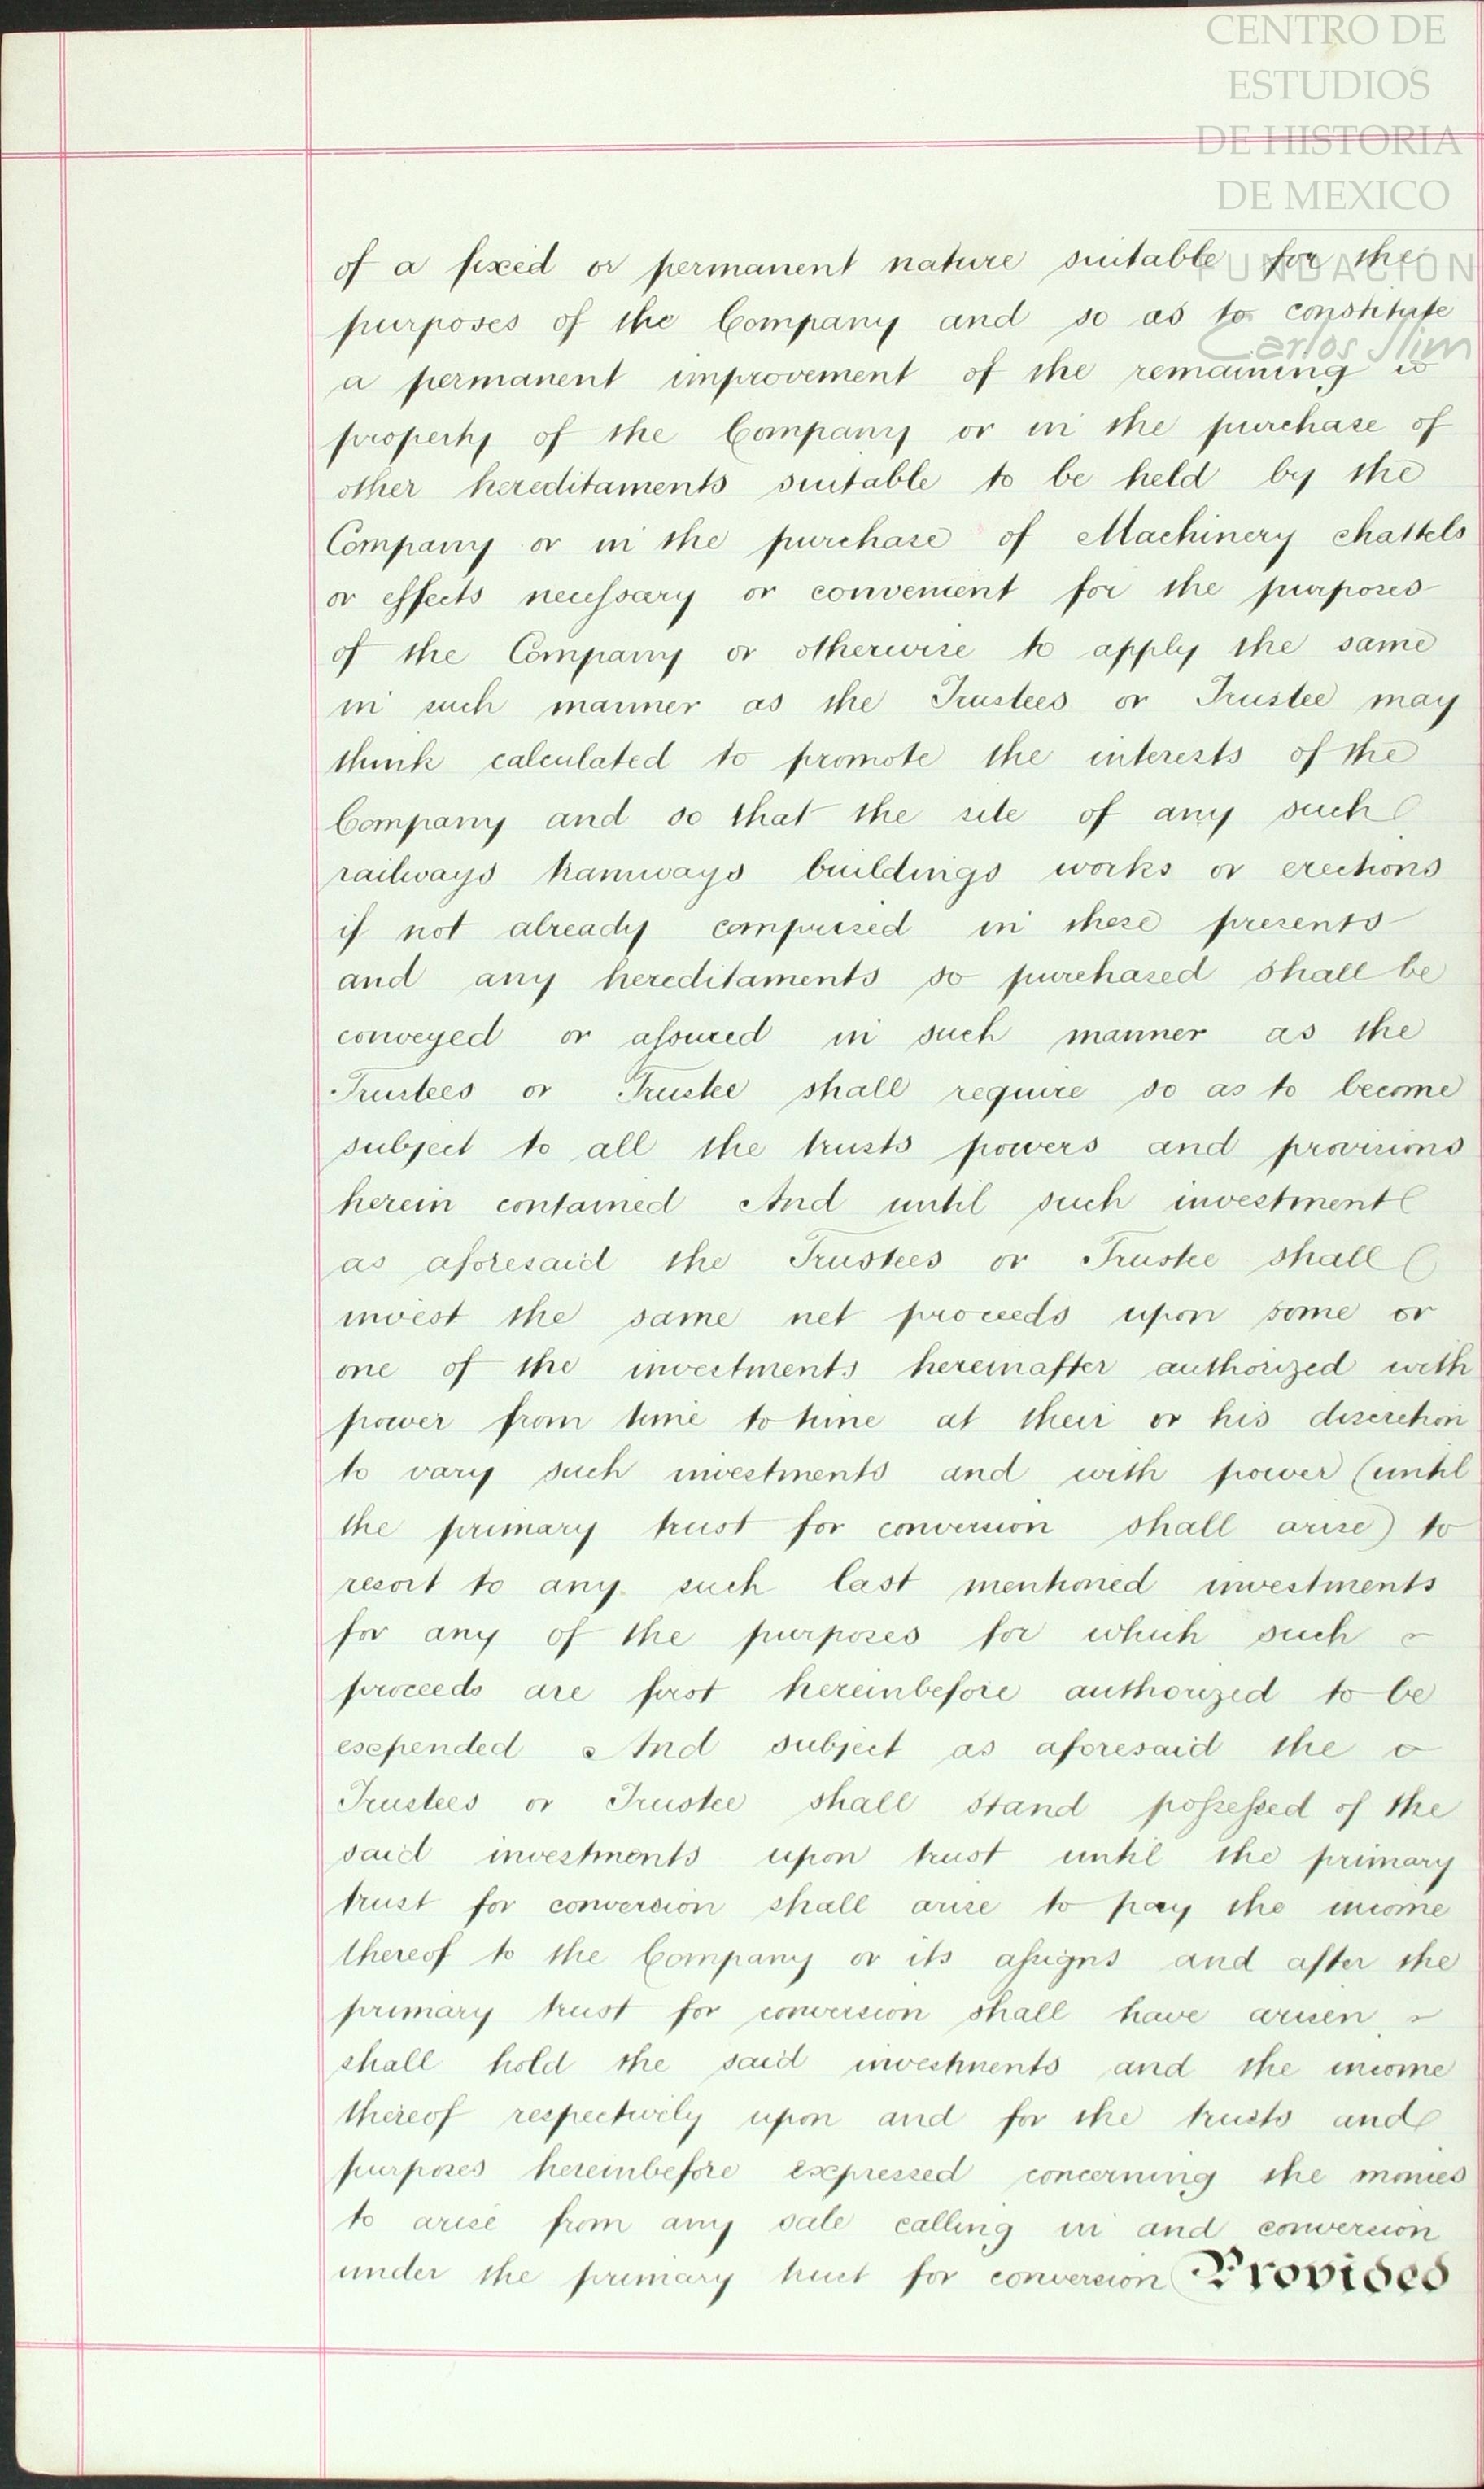 CENTRO DE
ESTUDIOS
DE HISTORIA
DE MEXICO
FUNDACIÓN
Carlos Slim
of a fixed or permanent nature suitable for the
purposes of the Company and so as to constitute
a permanent improvement of the remaining
property of the Company or in the purchase of
other hereditaments suitable to be held by the
Company or in the purchase of Machinery chattels
or effects necessary or convenient for the purposes
of the Company or otherwise to apply the same
in such manner as the Trustees or Trustee may
think calculated to promote the interests of the
Company and so that the site of any such
railways tramways buildings works or erections
if not already comprised in these presents
and any hereditaments so purchased shall be
conveyed or assured in such manner as the
Trustees or Trustee shall require so as to become
subject to all the trusts powers and provisions
herein contained And until such investment
as aforesaid the Trustees or Trustee shall
invest the same net proceeds upon some or
one of the investments hereinafter authorized with
power from time to time at their or his discretion
to vary such investments and with power (until
the primary trust for conversion shall arise) to
resort to any such last mentioned investments
for any of the purposes for which such
proceeds are first hereinbefore authorized to be
expended And subject as aforesaid the
Trustees or Trustee shall stand possessed of the
said investments upon trust until the primary
trust for conversion shall arise to pay the income
thereof to the Company or its assigns and after the
primary trust for conversion shall have arisen
shall hold the said investments and the income
thereof respectively upon and for the trusts and
purposes hereinbefore expressed concerning the monies
to arise from any sale calling in and conversion
under the primary trust for conversion Provided